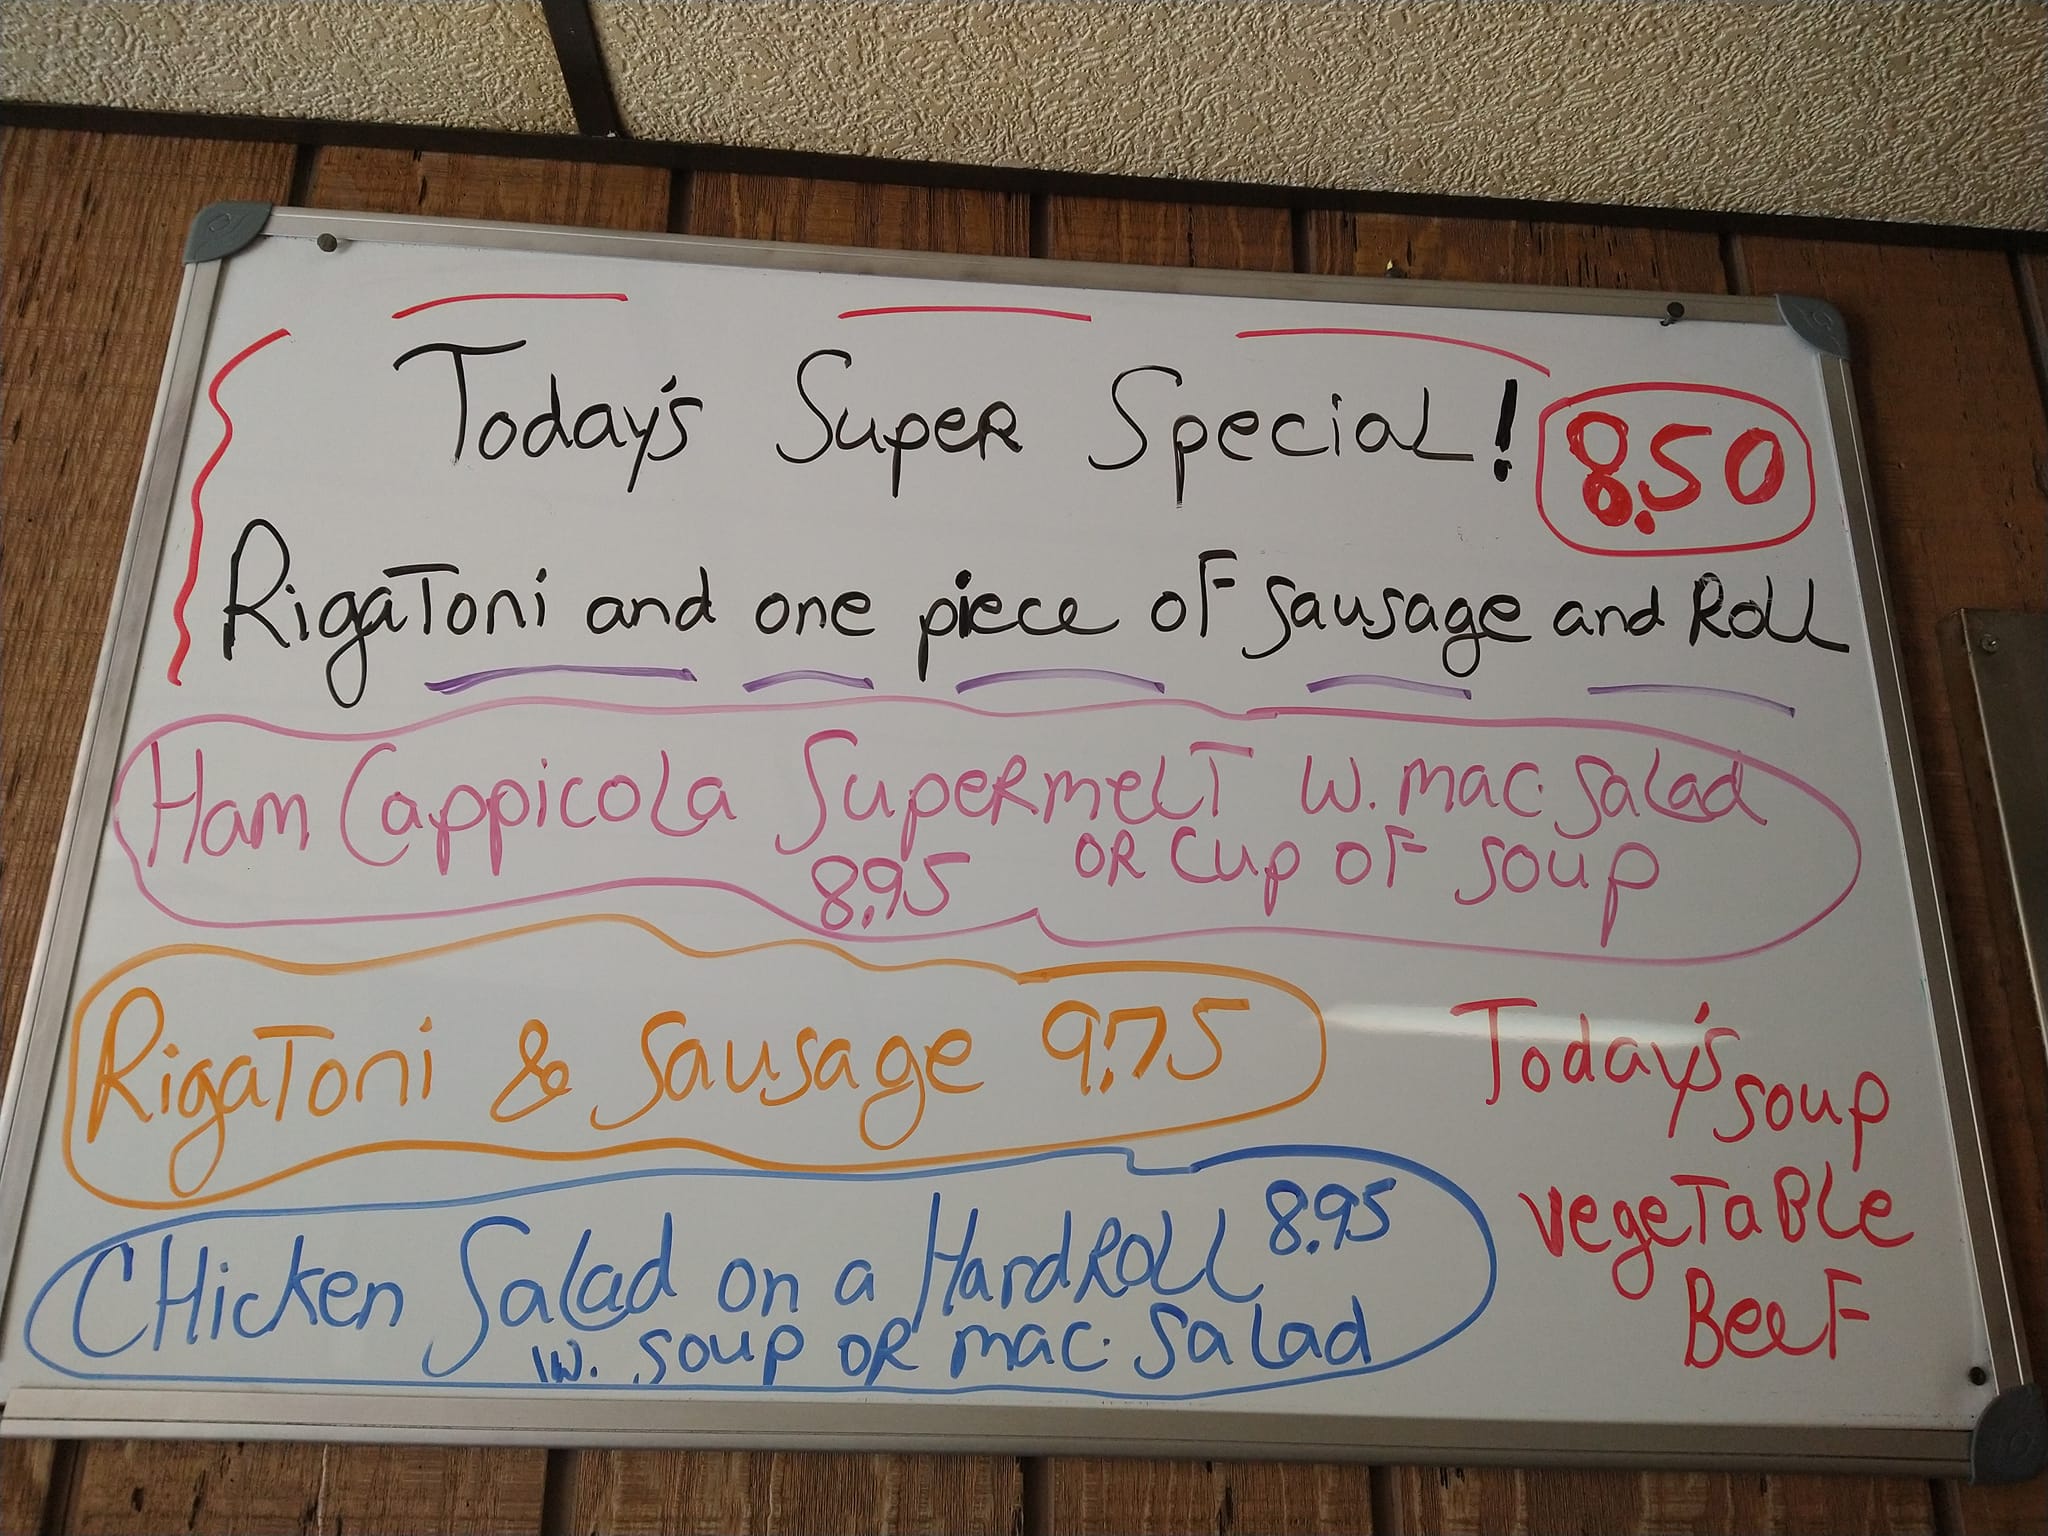 Today's Super Special! 8.50
Rigatoni and one piece of sausage and Roll
Ham Cappicola Supermelt w. mac. salad
8.95 or cup of soup
Rigatoni & Sausage 9.75
Chicken Salad on a Hard Roll 8.95
w. soup or mac. salad
Today's
soup
vegetable
Beef